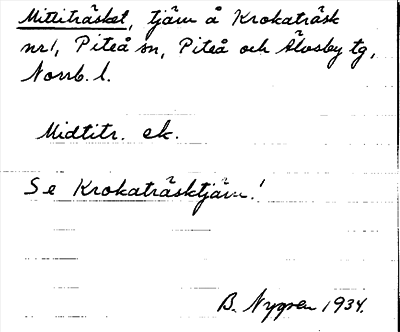 Mittiträsket, tjärn å Krokaträsk
nr 1, Piteå sn, Piteå och Älvsby tg,
Norrb. l.
Midtitr. ek.
Se Krokaträsktjärn!
B. Nygren 1934.